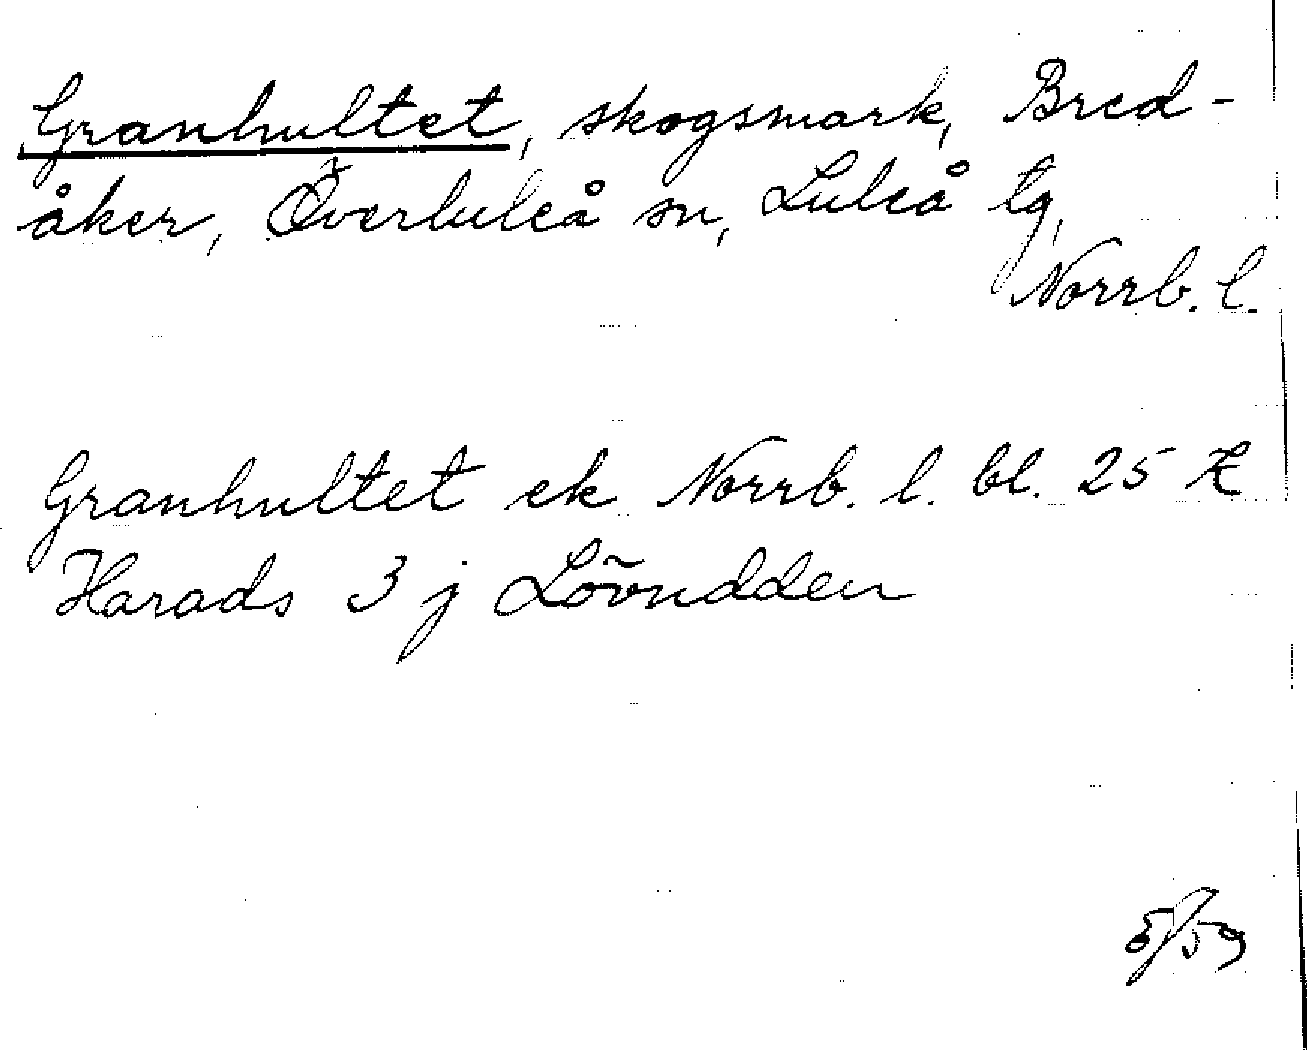 Granhultet, skogsmark, Bred-
åker, Överluleå sn, Luleå tg,
Norrb. l.
Granhultet ek Norrb. l. bl. 25 K
Harads 3 j Lövudden
5/59